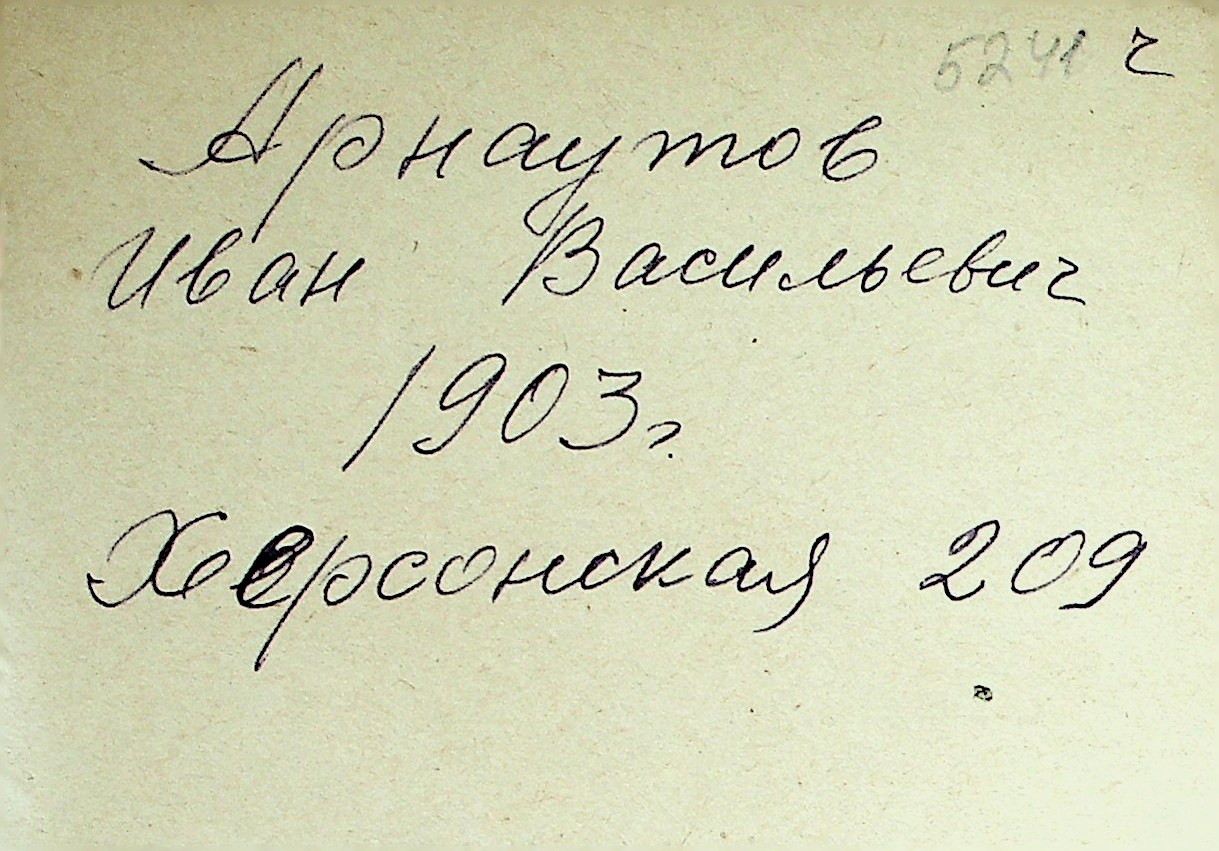 5241 ч
Арнаутов
Иван Васильевич
1903г.
Херсонская 209